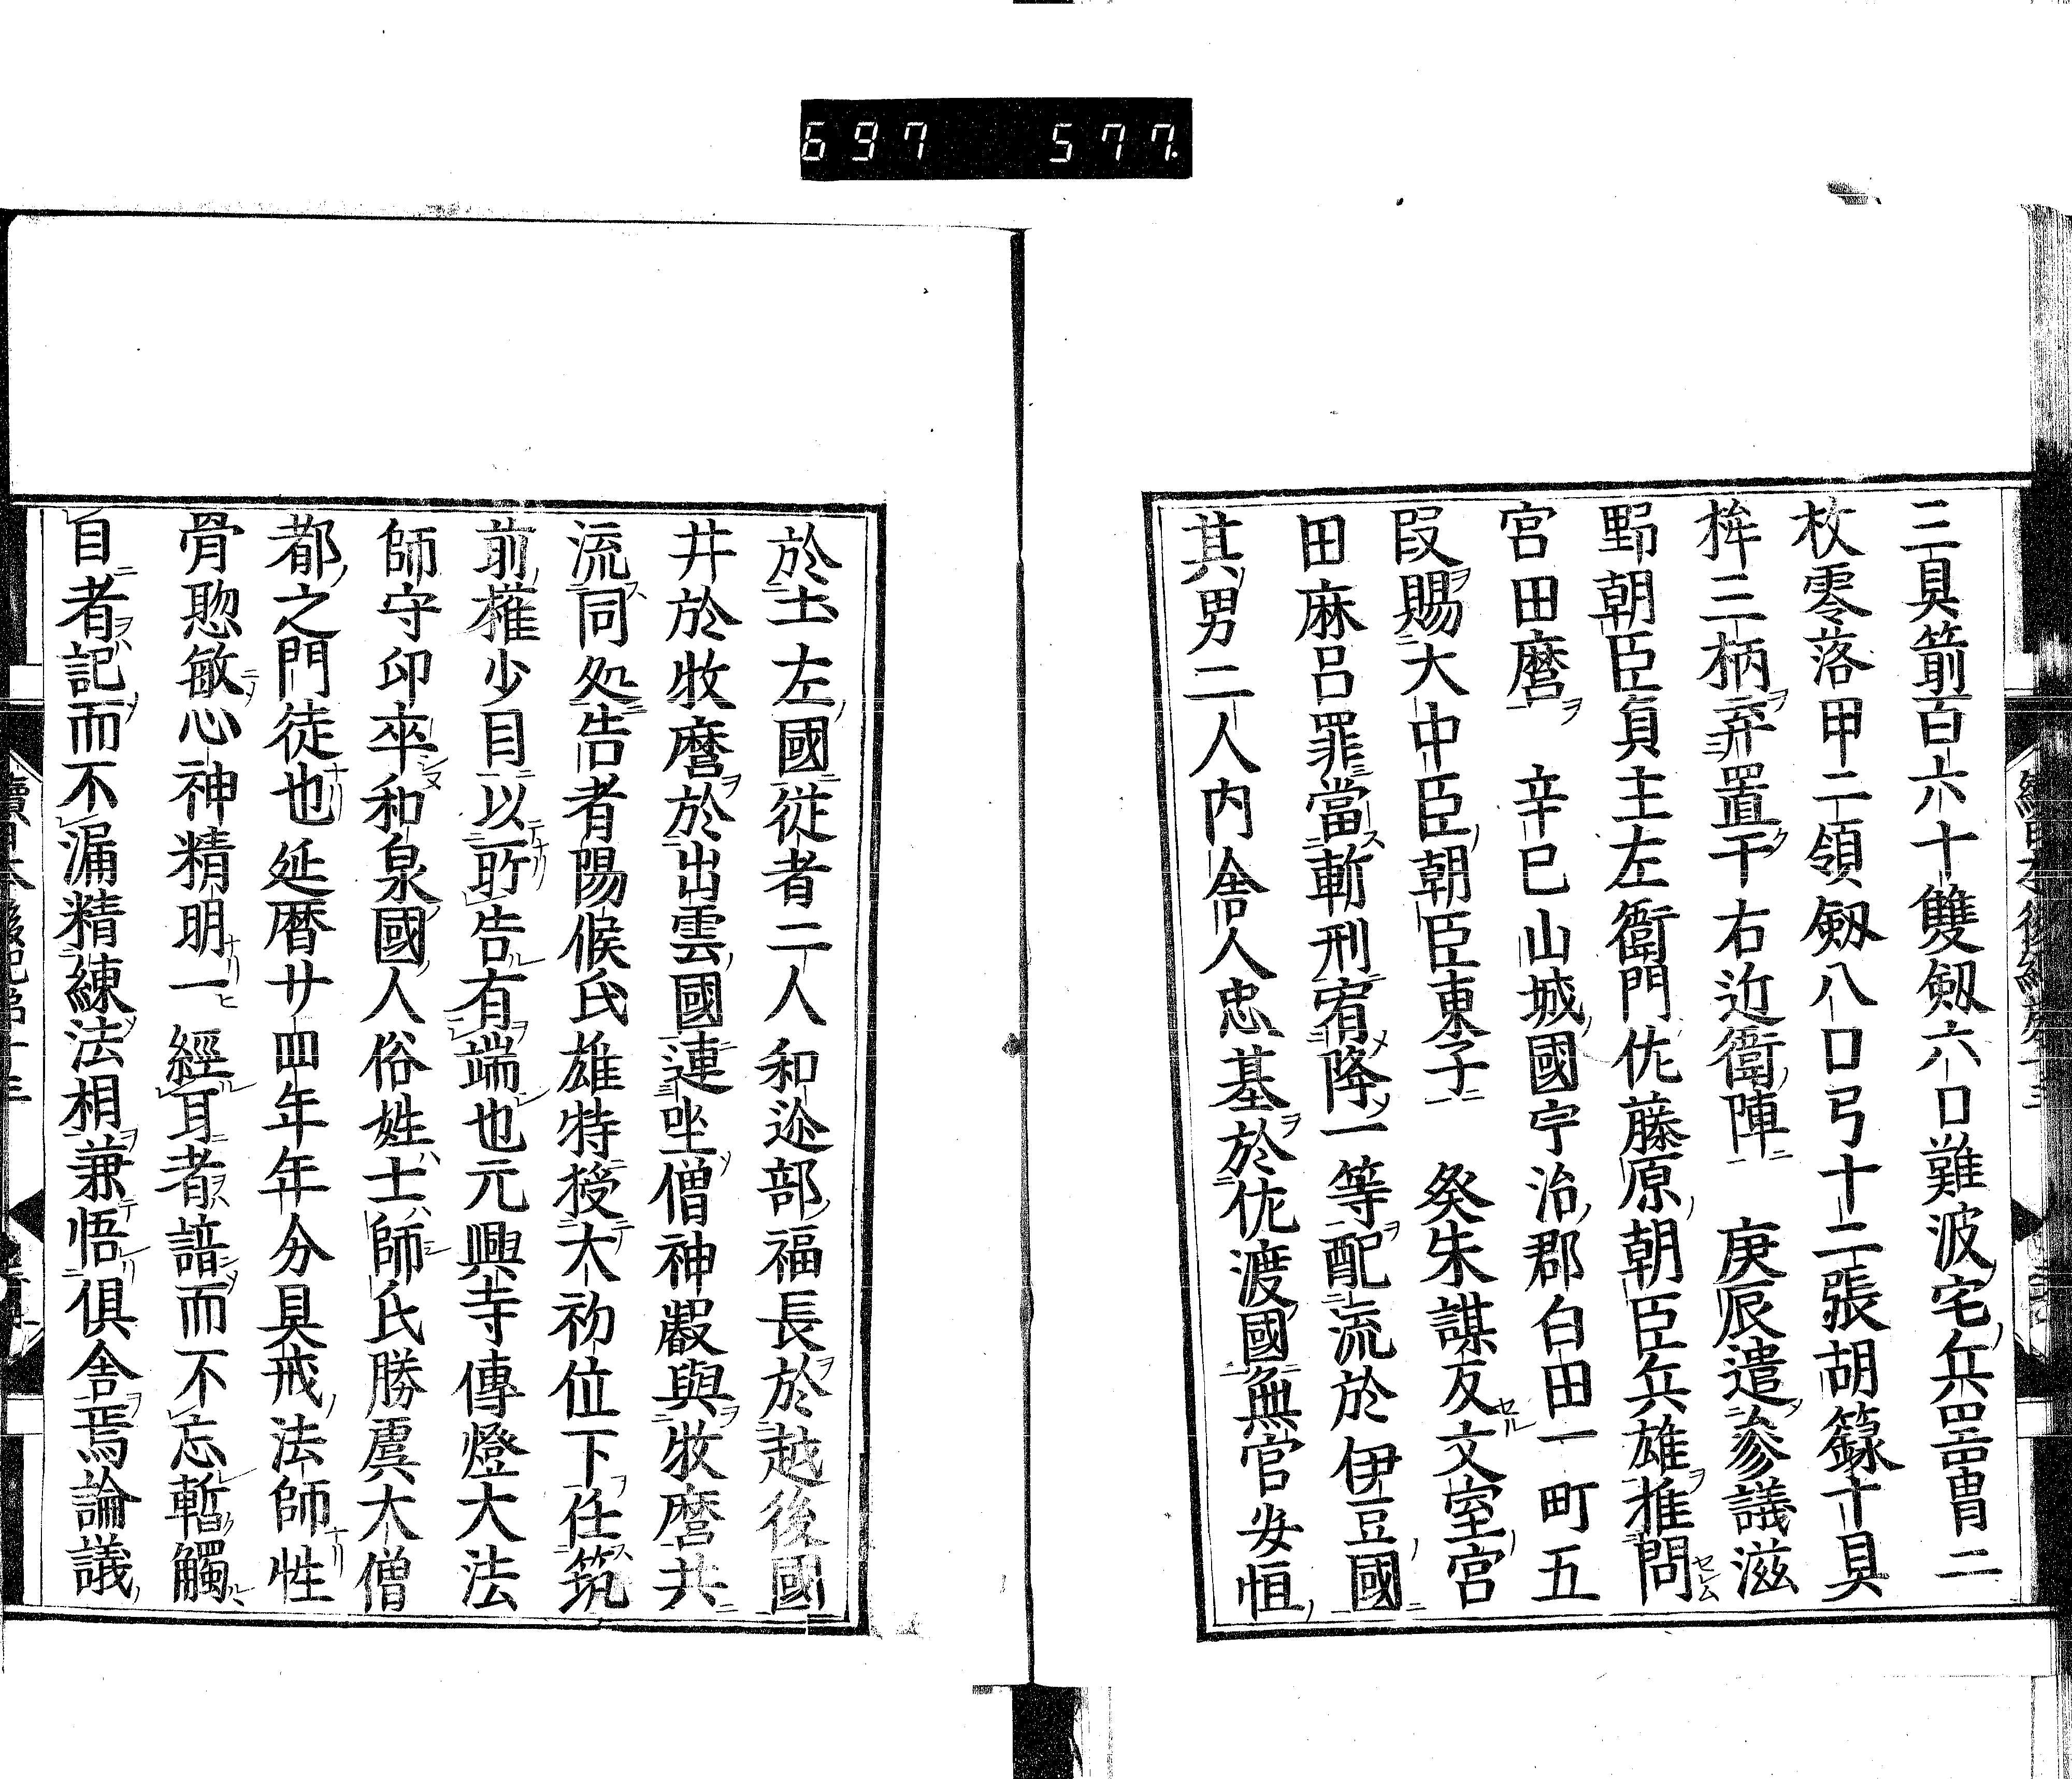 697 577
三具箭百六十雙劔六口難波宅兵器冑二
枚零落甲二領劔八口弓十二張胡籙十具
桙三柄弃置干右近衛陣 庚辰遣參議滋
野朝臣貞主左衛門佐藤原朝臣兵雄推問
宮田麿 辛巳山城國宇治郡白田一町五
段賜大中臣朝臣東子 癸未謀反文室宮
田麻呂罪當斬刑宥降一等配流於伊豆國
其男二人内舎人忠基於佐渡國無官安恒
於土左國從者二人和迩部福長於越後國
井於牧麿於出雲國連坐僧神叡與牧麿共
流同処告者陽候氏雄特授大初位下任筑
前權少目以所告有端也元興寺傳燈大法
師守印卒和泉國人俗姓土師氏勝虞大僧
都之門徒也延曆廿四年年分具戒法師性
骨聡敏心神精明一經耳者諳而不忘暫觸
目者記而不漏精練法相兼悟俱舎焉論議